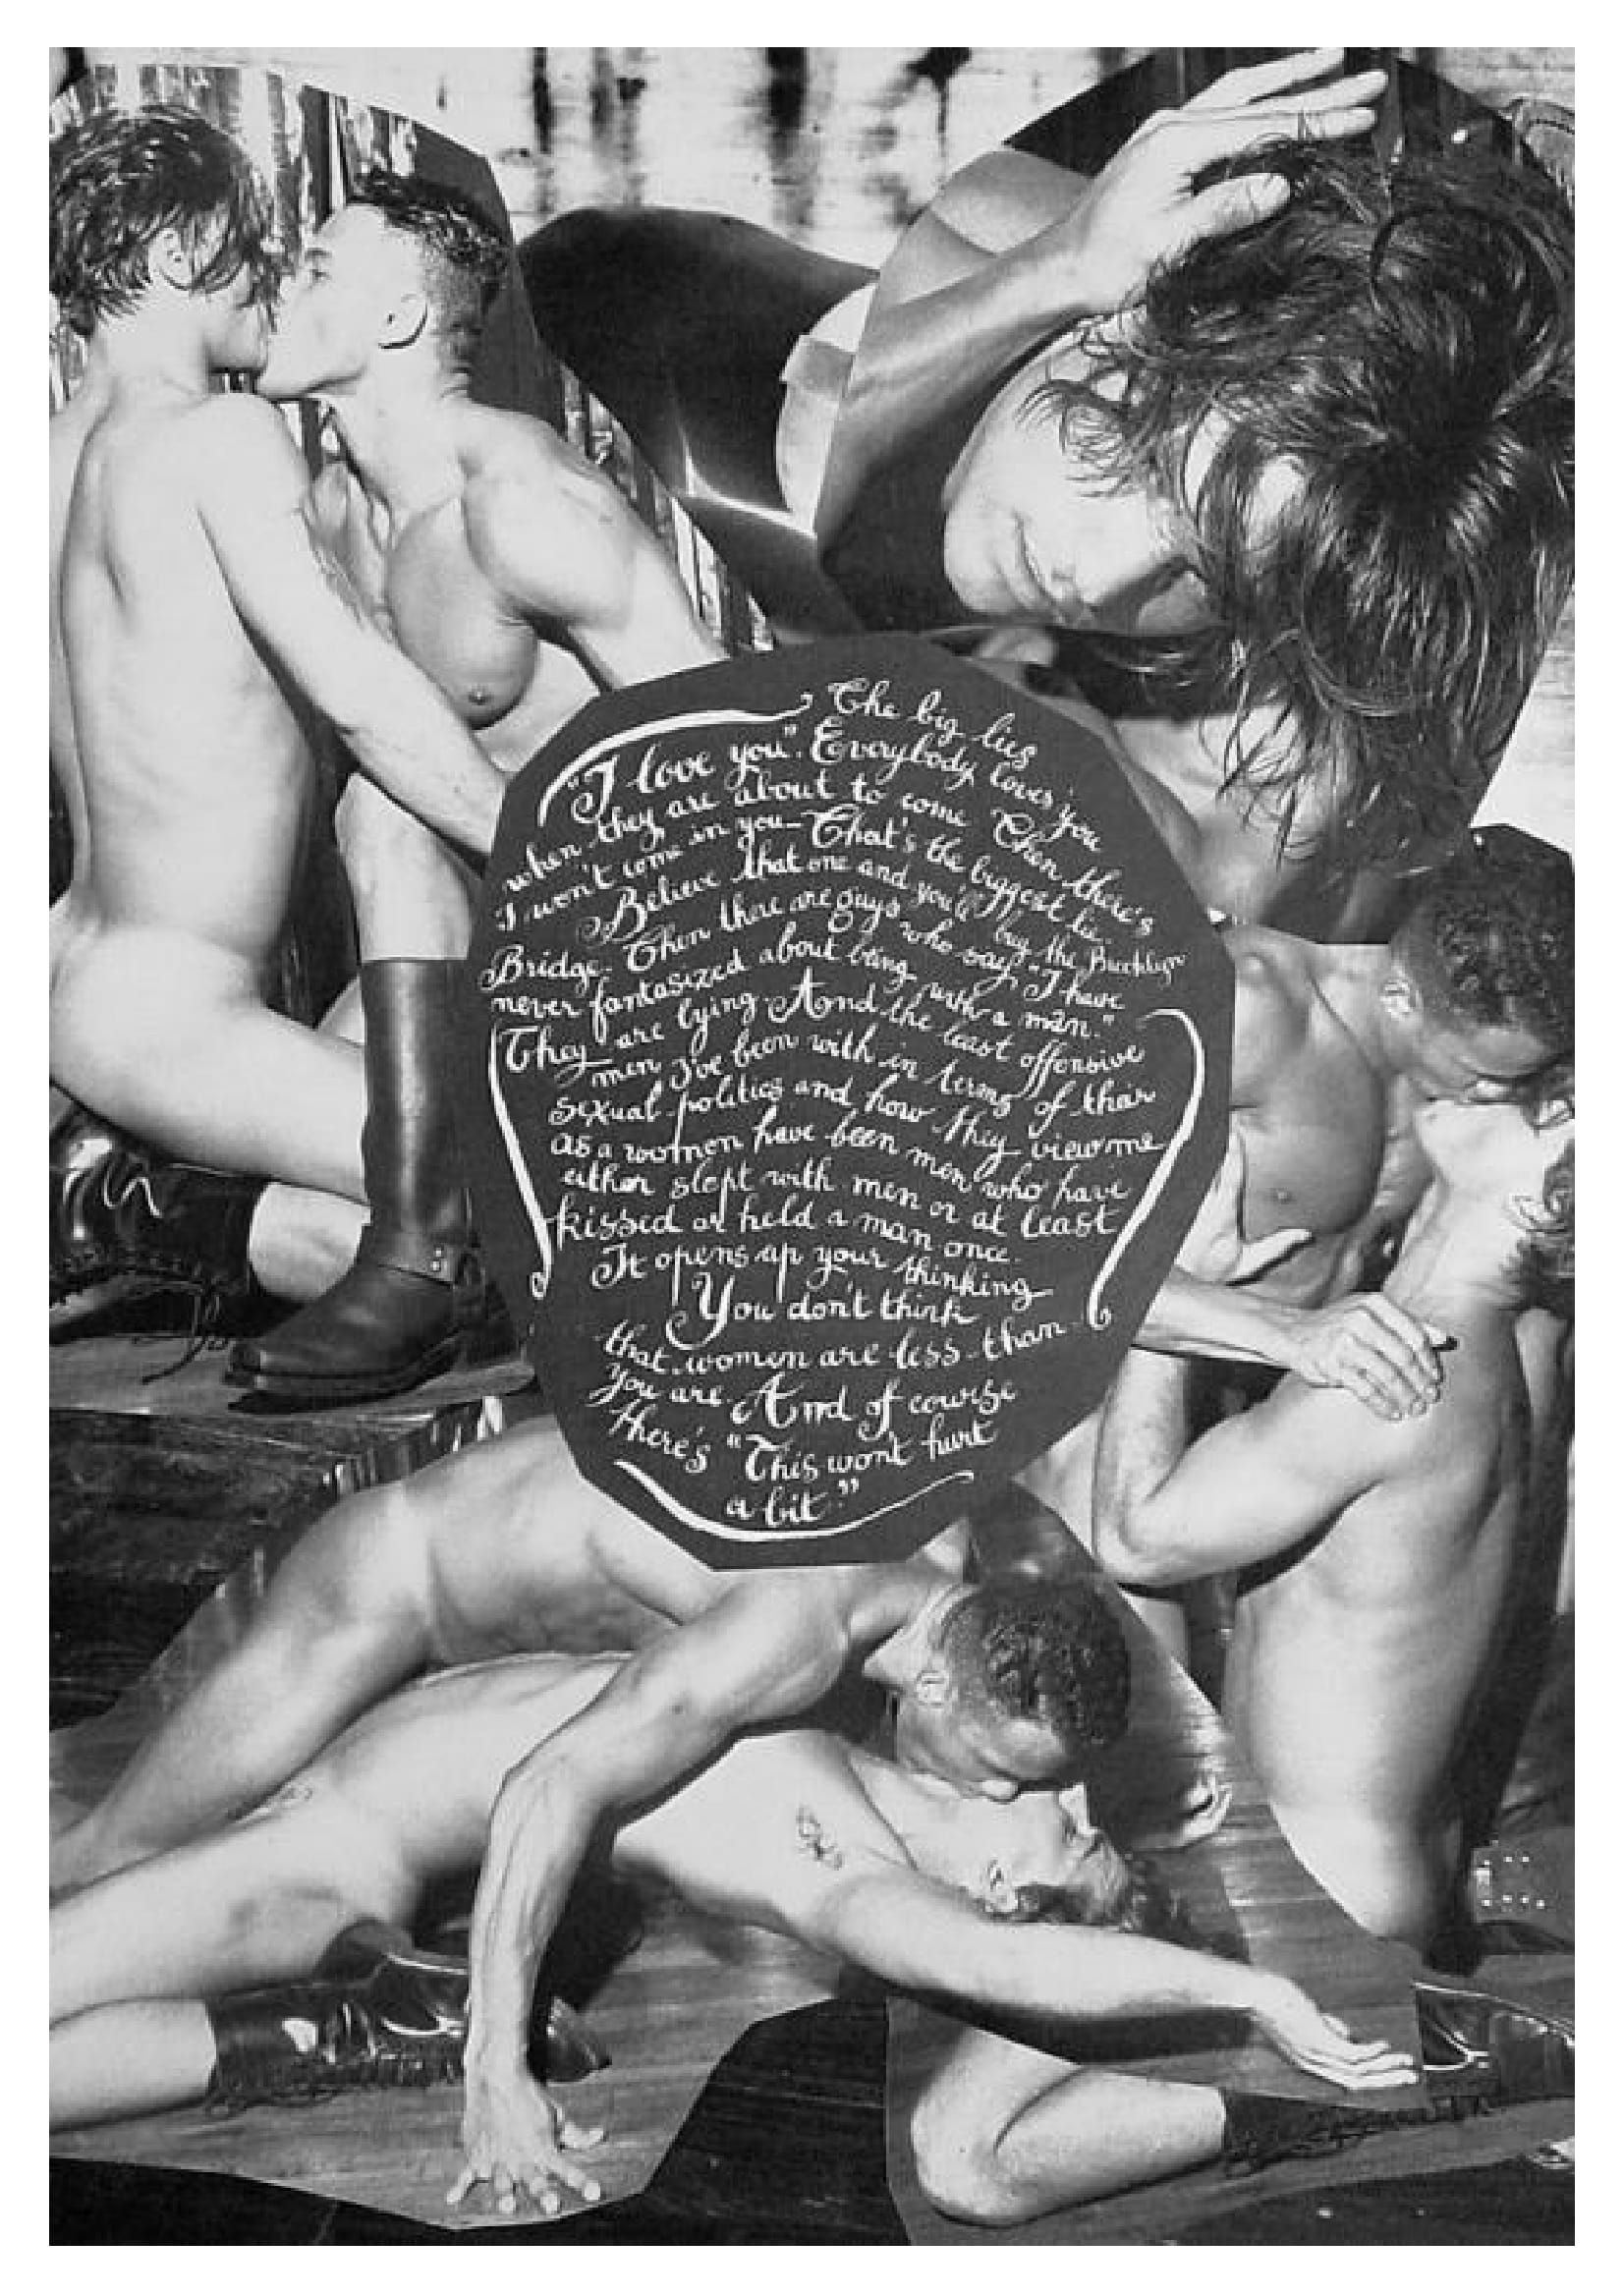 The big lies
"I love you". Everybody loves you
when they are about to come Then there's
I won't come in you— That's the biggest lie
Believe that one and you'll buy the Brooklyn
Bridge. Then there are guys who say, "I have
never fantasized about being with a man."
They are lying And the least offensive
men I've been with in terms of their
sexual politics and how they view me
as a women have been men who have
either slept with men or at least
kissed or held a man once.
It opens up your thinking
You don't think
that women are less than
you are And of course
there's "This won't hurt
a bit."